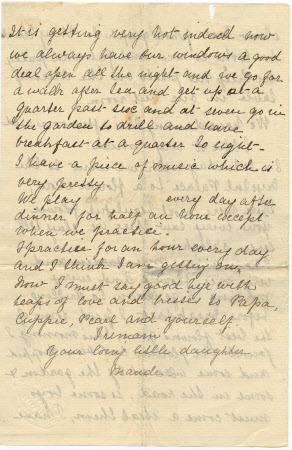 It is getting very hot indeed now
we always have our windows a good
deal open all the night and we go for
a walk after tea and get up at a
quarter past six and at seven go in
the garden to drill and have
breakfast at a quarter to eight.
I have a piece of music which is
very pretty
We play every day after
dinner for half an hour except
when we practice.
I practice for an hour every day
and I think I am getting on.
Now I must say good bye with
heaps of love and kisses to Papa,
Cuppie, Pearl and yourself.
I remain
Your loving little daughter